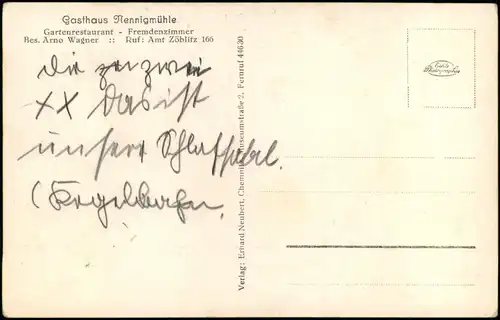 Gasthaus Nennigmühle
Gartenrestaurant - Fremdenzimmer
Bes. Arno Wagner :: Ruf: Amt Zöblitz 166
die zu zwei
xx Das ist
unser Schlafsaal.
(Kegelbahn.
Verlag: Erhard Neubert, Chemnitz, Museumstraße 2, Fernruf 44630
Echte Photographie